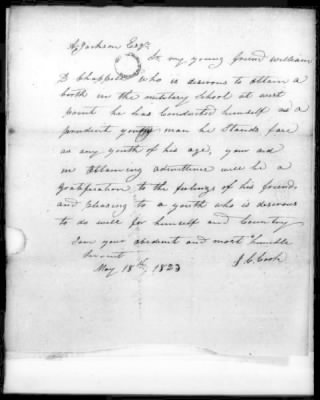 A Jackson Esqr.
Sr my young friend William
D Chappell who is desirous to obtain a
birth in the military School at west
point he has Conducted himself as a
prudent young man he Stands fare
as any youth of his age, your aid
in obtaining admittance will be a
gratification to the feelings of his friends
and pleasing to a youth who is desirous
to do well for himself and Country
I am your obedient and most humble
Servant
May 18th, 1823
J. C. Cook